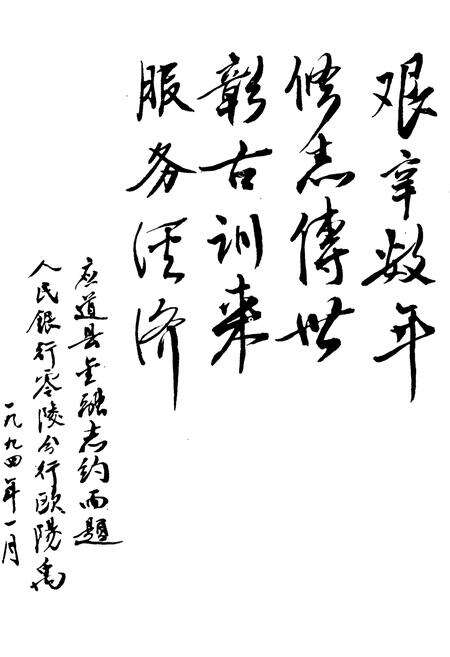 艰辛数年
修志傳世
彰古训来
服务经济
应道县金融志约而题
人民銀行零陵分行欧陽禹
一九九四年一月